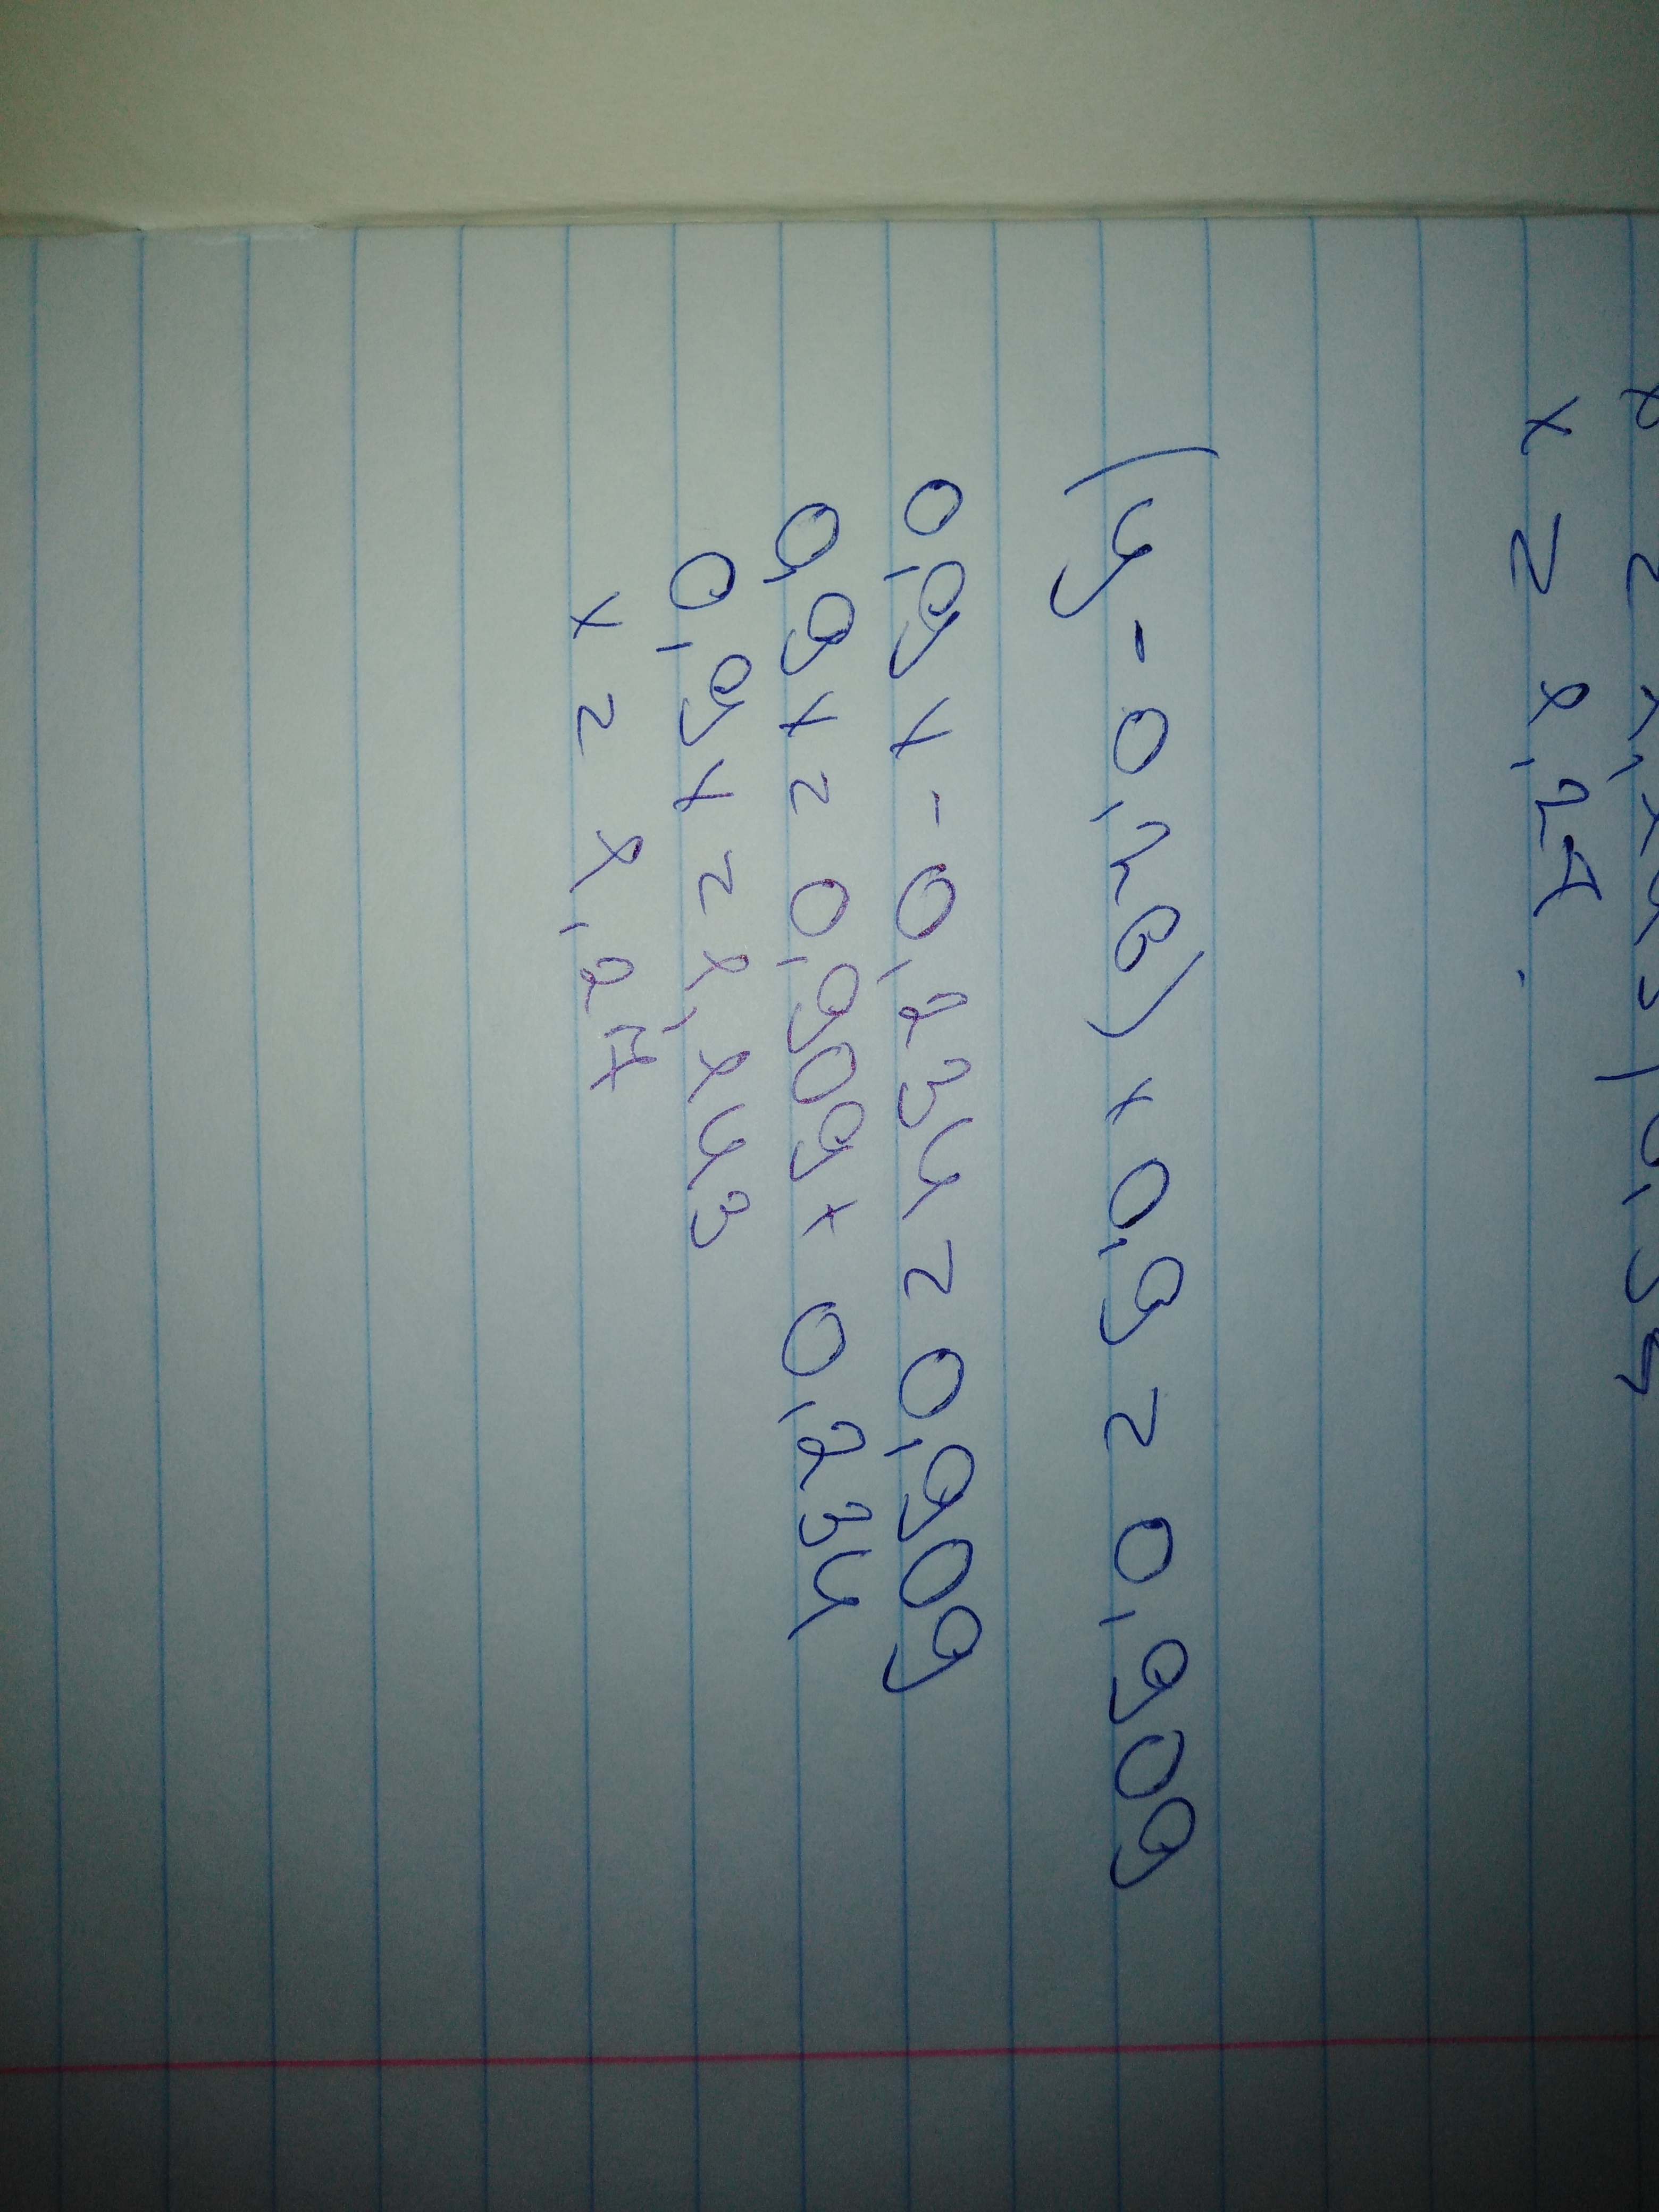 x = 1,27
(y - 0,26) x 0,9 = 0,909
0,9x - 0,234 = 0,909
0,9x = 0,909 + 0,234
0,9x = 1,143
x = 1,27